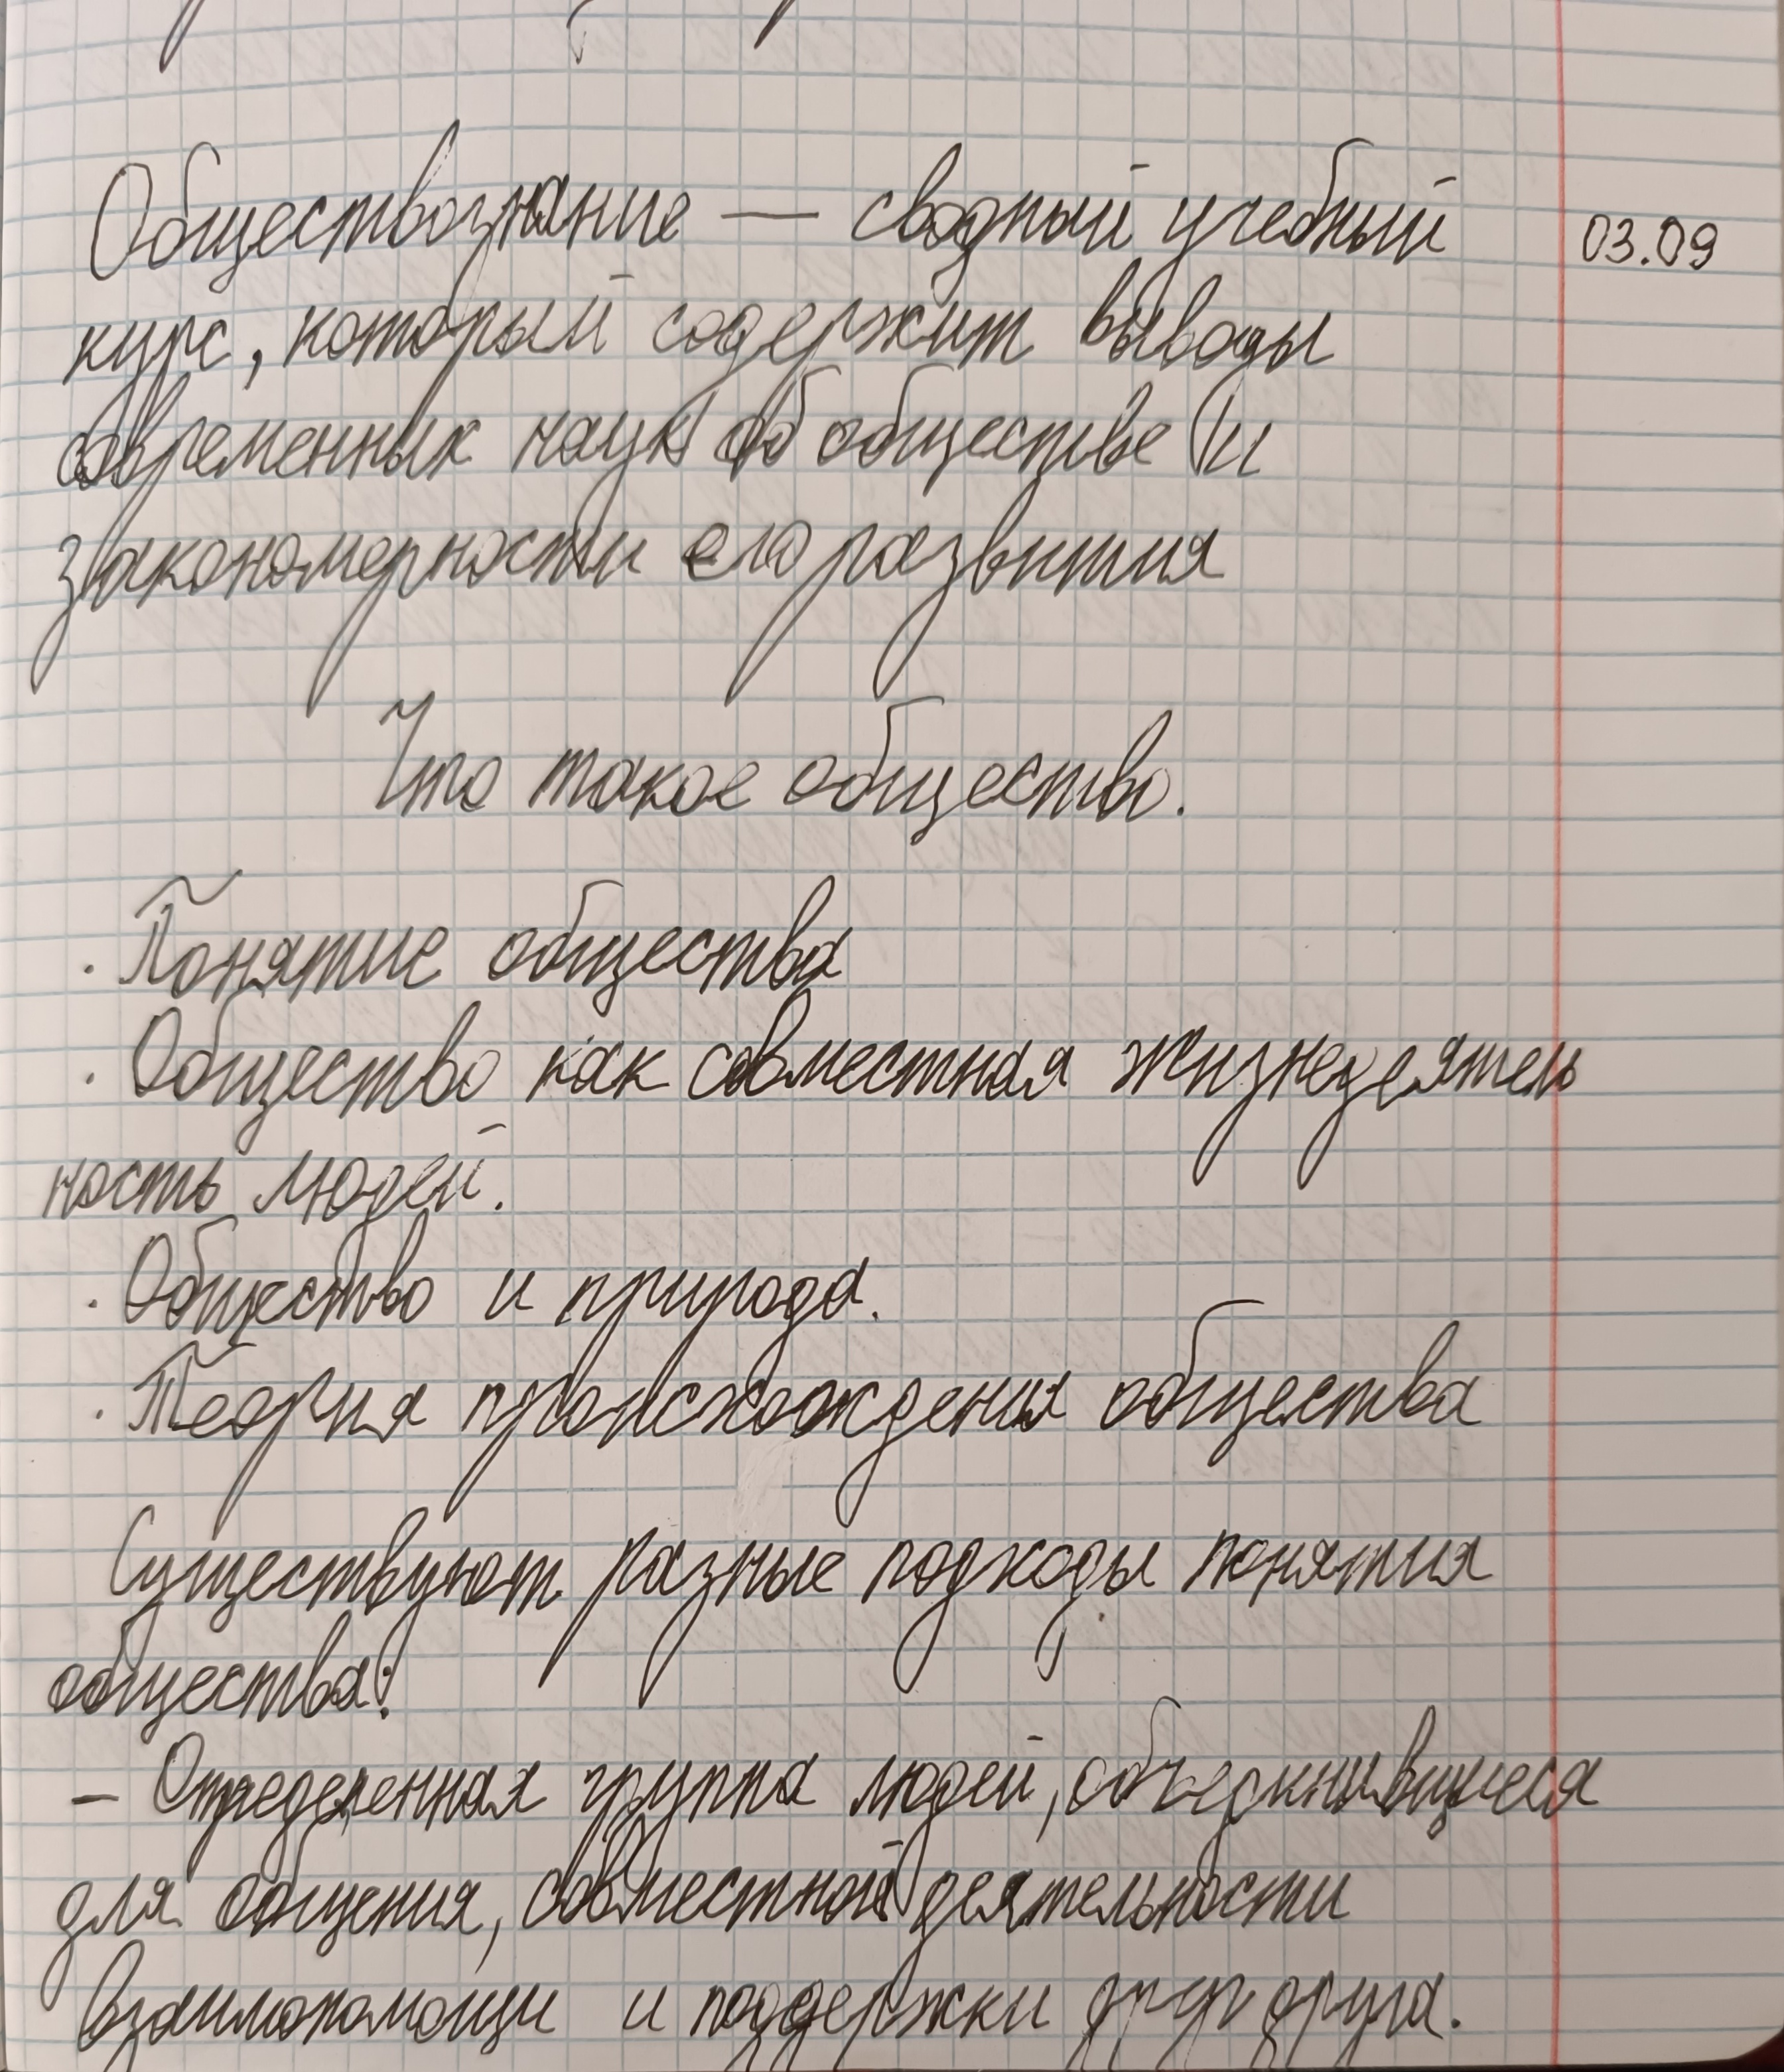 Обществознание — сводный учебный 03.09
курс, который содержит выводы
современных наук об обществе и
закономерности его развития
Что такое общество.
· Понятие общества
· Общество как совместная жизнедеятель
ность людей.
· Общество и природа.
· Теория происхождения общества
Существуют разные подходы понятия
общества:
– Определенная группа людей, объединившиеся
для общения, совместной деятельности
взаимопомощи и поддержки друг друга.